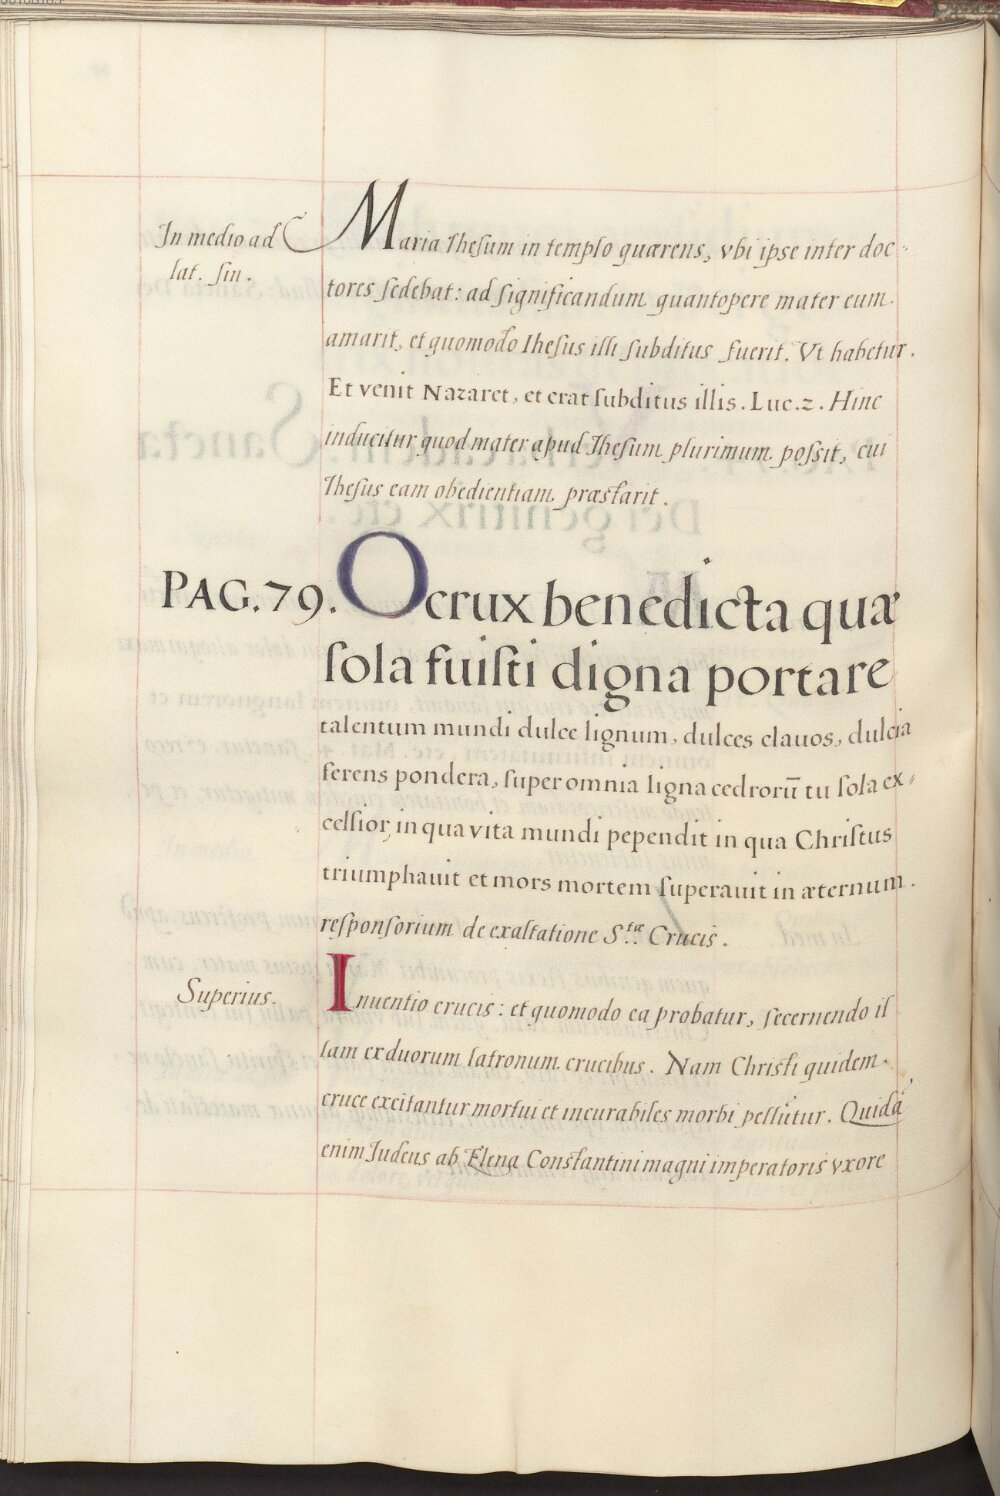 In medio ad
lat. sin.
Maria Ihesum in templo quærens, vbi ipse inter doc-
tores sedebat: ad significandum quantopere mater eum
amarit, et quomodo Ihesus illi subditus fuerit. Vt habetur.
Et venit Nazaret, et erat subditus illis. Luc. 2. Hinc
inducitur quod mater apud Ihesum plurimum possit, cui
Ihesus eam obedientiam præstarit.
PAG. 79. O crux benedicta quæ
sola fuisti digna portare
talentum mundi dulce lignum, dulces clauos, dulcia
ferens pondera, super omnia ligna cedrorū tu sola ex-
celsior, in qua vita mundi pependit in qua Christus
triumphauit et mors mortem superauit in æternum.
responsorium de exaltatione S.tæ Crucis.
Superius.
Inuentio crucis: et quomodo ea probatur, secernendo il
lam ex duorum latronum crucibus. Nam Christi quidem
cruce excitantur mortui et incurabiles morbi pellūtur. Quidā
enim Judeus ab Elena Constantini magni imperatoris vxore